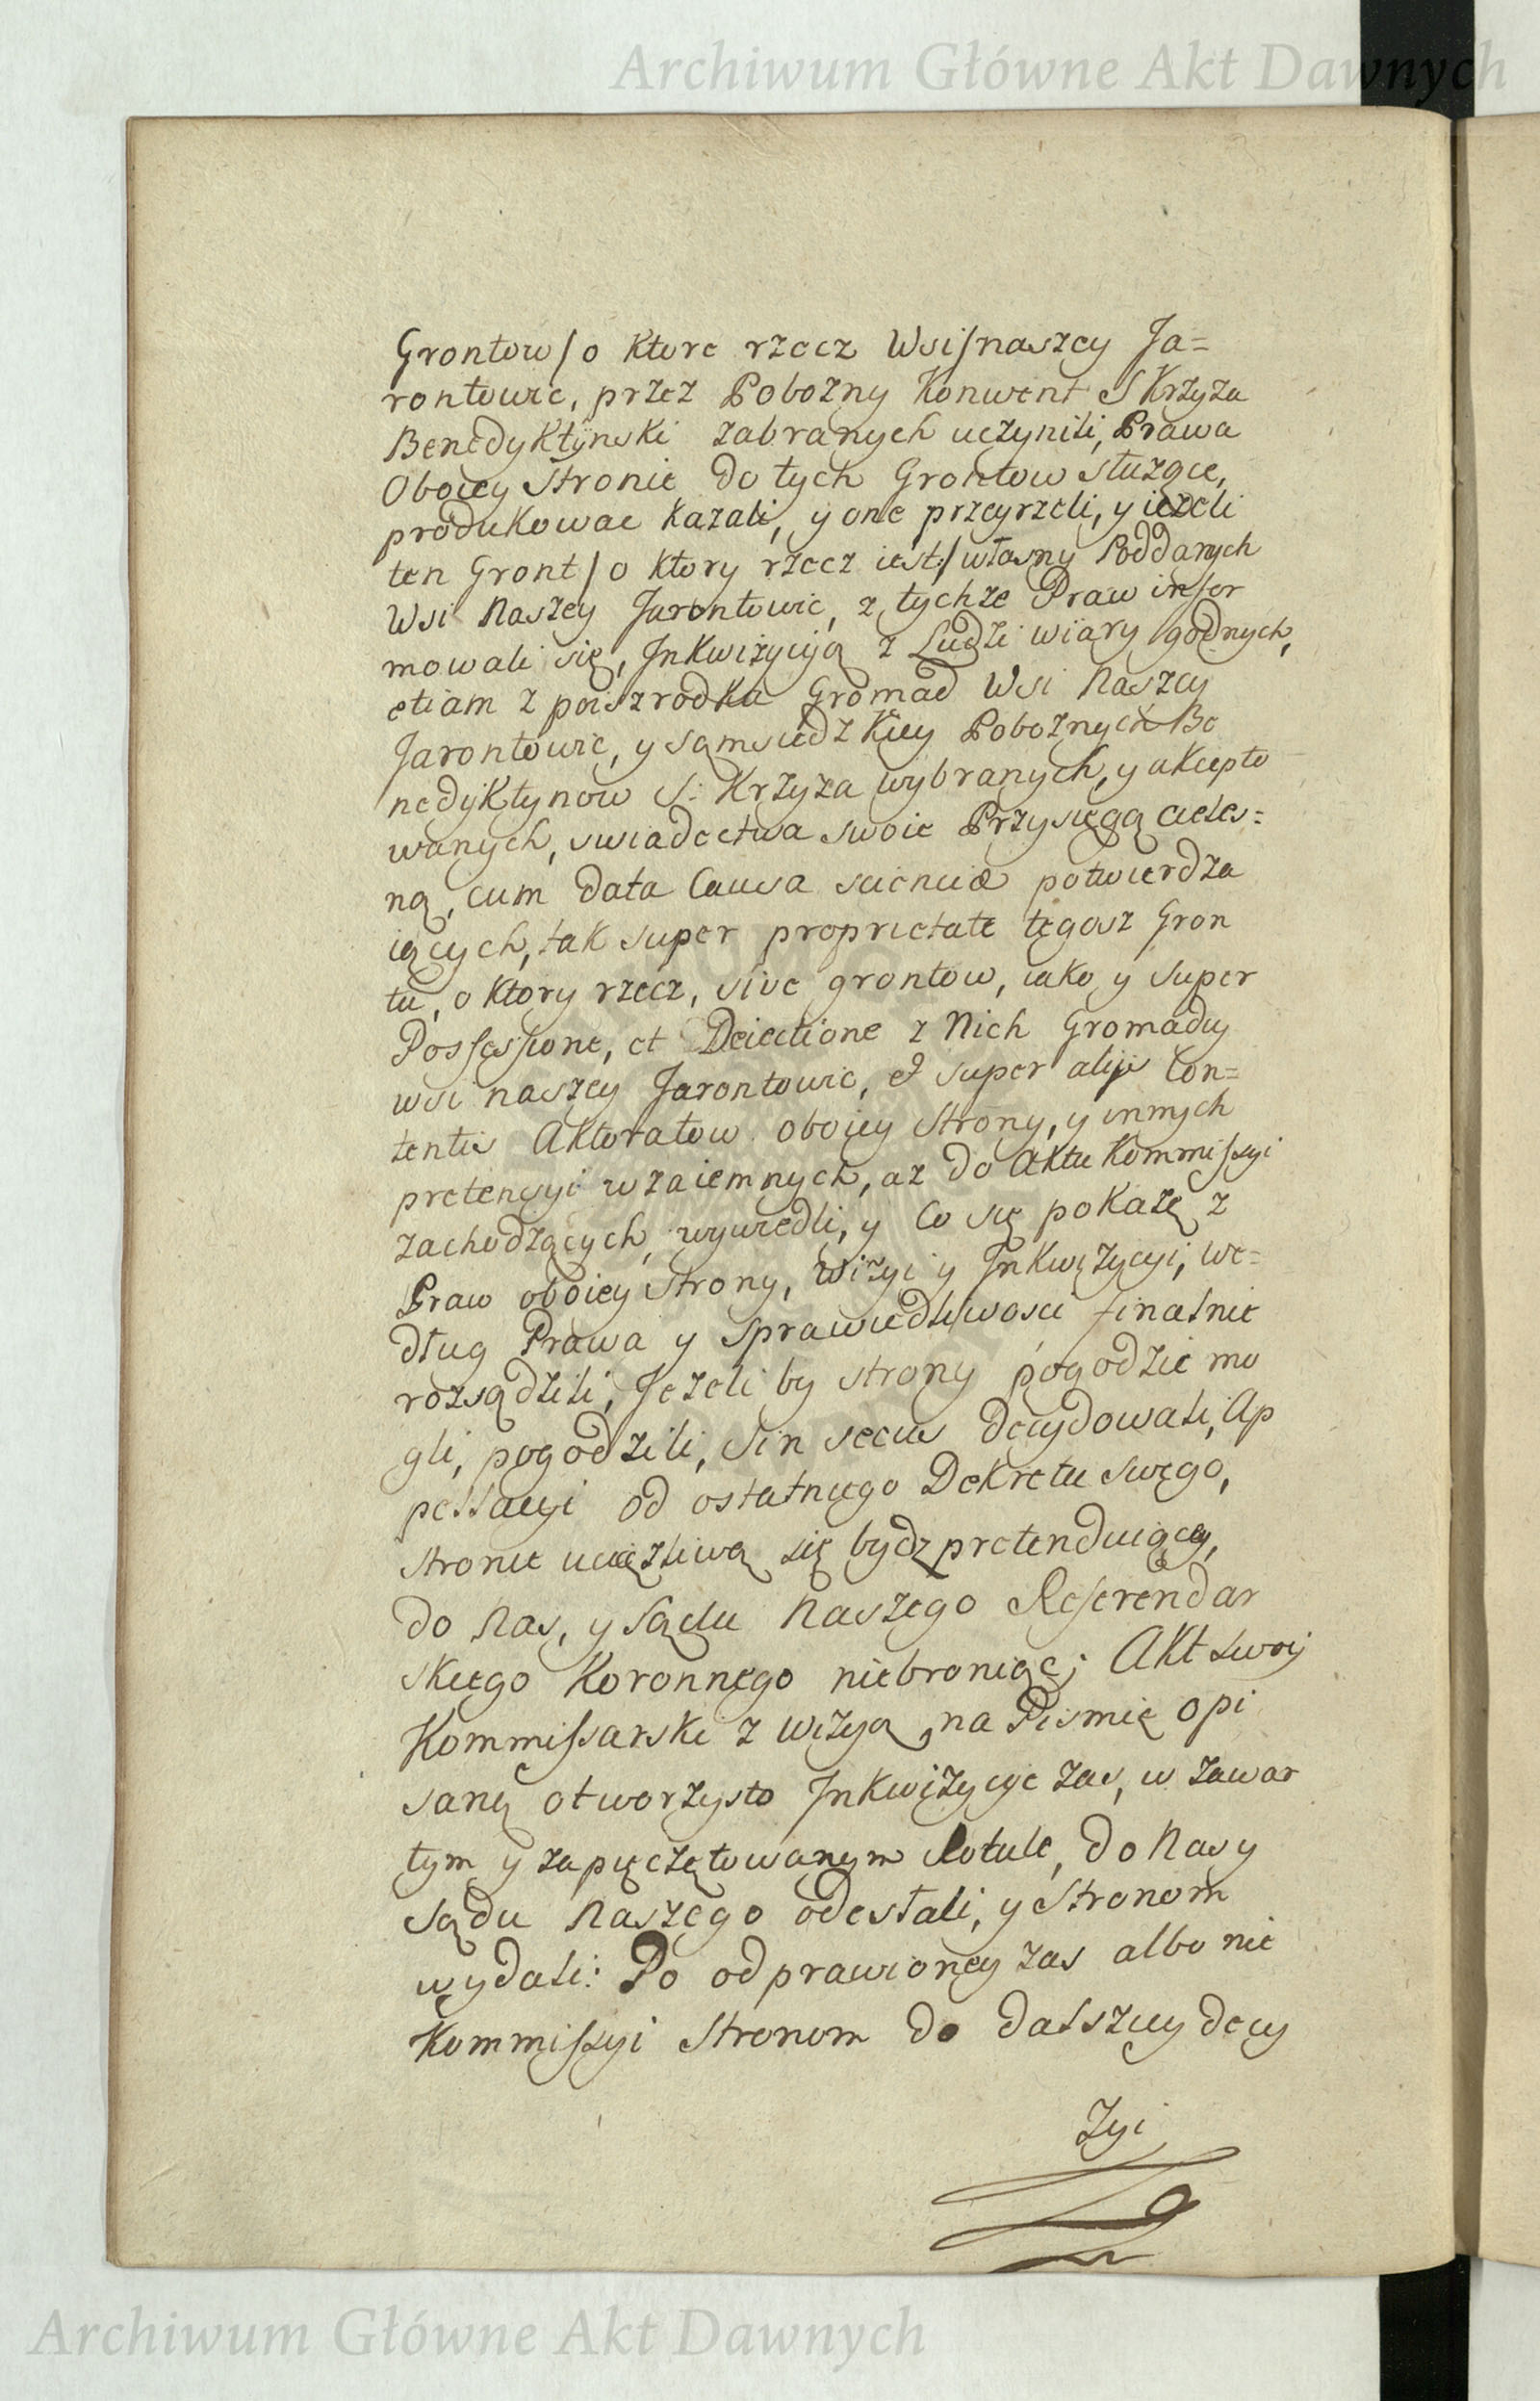 Archiwum Główne Akt Dawnych
Grontow / o ktore rzecz Wsi / naszey Ja=
rontowic, przez Pobozny Konwent S Krzyza
Benedyktynski zabranych uczynili, Prawa
Oboiey Stronie do tych Grontow słuzące,
produkowac kazali, y one przeyrzeli, y iezeli
ten Gront / o ktory rzecz iest:/ własny Poddanych
Wsi Naszey Jarontowic, z tychze Praw infor
mowali się, Jnkwizycyją z Ludzi wiary godnych,
etiam z poiszrodka Gromad Wsi Naszey
Jarontowic, y sąmsiedzkiey Poboznych Be
nedyktynow S: Krzyza wybranych, y akcepto
wanych, swiadectwa swoie Przysięgą cieles=
ną, cum data Causa scienciæ potwierdza
iących, tak super proprietate tegosz Gron
tu, o ktory rzecz, sive grontow, iako y super
Possessione, et Deiectione z Nich Gromady
wsi naszey Jarontowic, et super alijs Con=
tentis Aktoratow oboiey Strony, y innych
pretensyi wzaiemnych, az do Aktu Kommissyi
zachodzących, wywiedli, y Co się pokazę z
Praw oboiey Strony, Wizyi y Jnkwizycyi, we=
dług Prawa y Sprawiedliwosci finalnie
rozsądzili, Jezeli by strony pogodzic mo
gli, pogodzili, Sin secus decydowali, Ap
pellacyi od ostatniego Dekretu swego,
stronie uciązliwą się bydz pretenduiącey,
do Nas, y Sądu Naszego Referendar
skiego Koronnego niebroniąc; Akt swoy
Kommissarski z wizyą na Pismie opi
saną otworzysto Jnkwizycye zas, w zawar
tym y zapieczętowanym Rotule, do Nas y
Sądu Naszego odesłali, y Stronom
wydali: Po odprawioney zas albo nie
Kommissyi Stronom do dalszey decy
zyi
Archiwum Główne Akt Dawnych